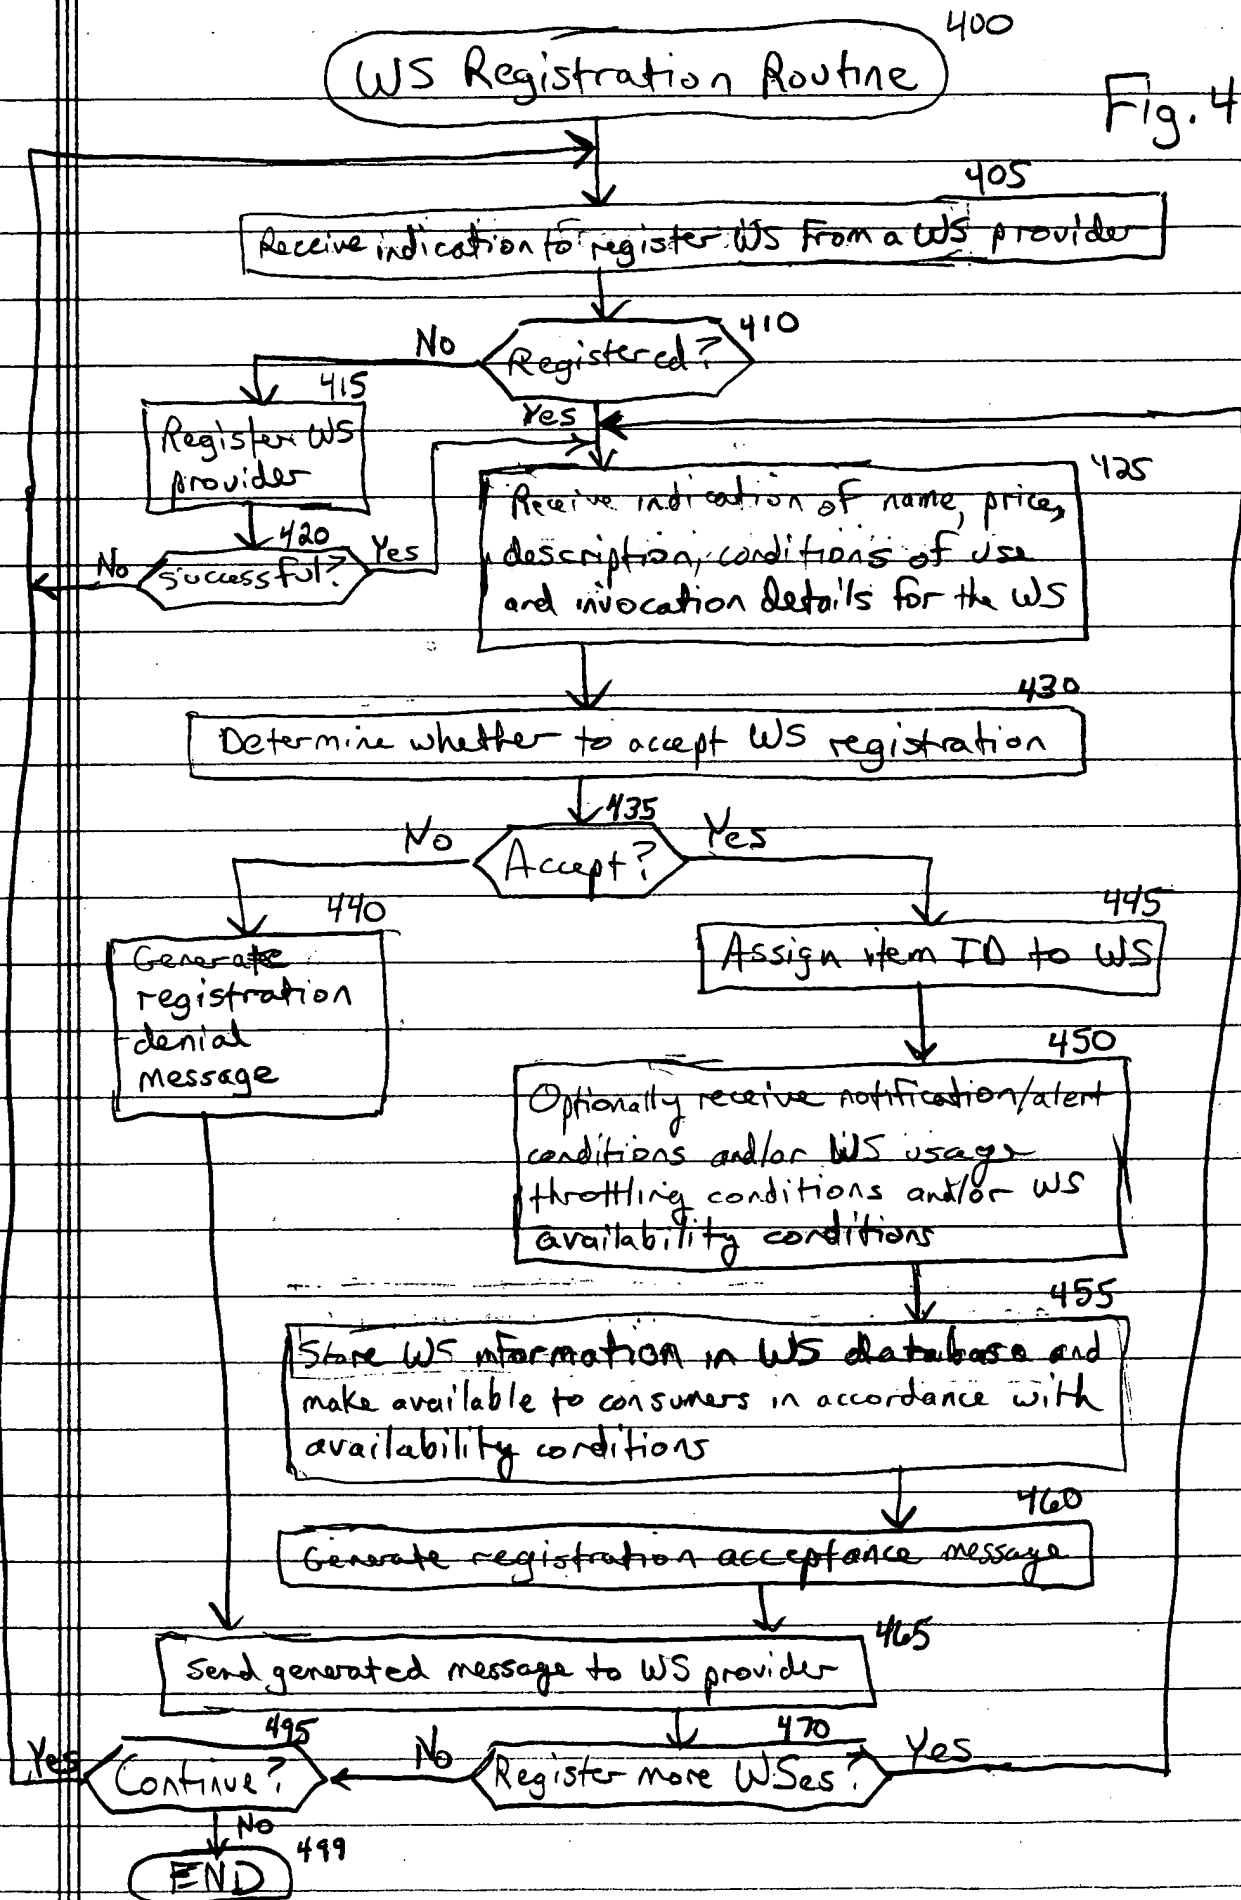 400
WS Registration Routine
Fig. 4
405
Receive indication to register WS from a WS provider
410
No
Registered?
415
Yes
Register WS
provider
425
Receive indication of name, price,
description, conditions of use
and invocation details for the WS
420
No
Successful?
Yes
430
Determine whether to accept WS registration
435
No
Accept?
Yes
440
Generate
registration
denial
message
445
Assign item ID to WS
450
Optionally receive notification/alert
conditions and/or WS usage
throttling conditions and/or WS
availability conditions
455
Store WS information in WS database and
make available to consumers in accordance with
availability conditions
460
Generate registration acceptance message
465
Send generated message to WS provider
495
470
Yes
Continue?
No
Register more WSes?
Yes
No
499
END